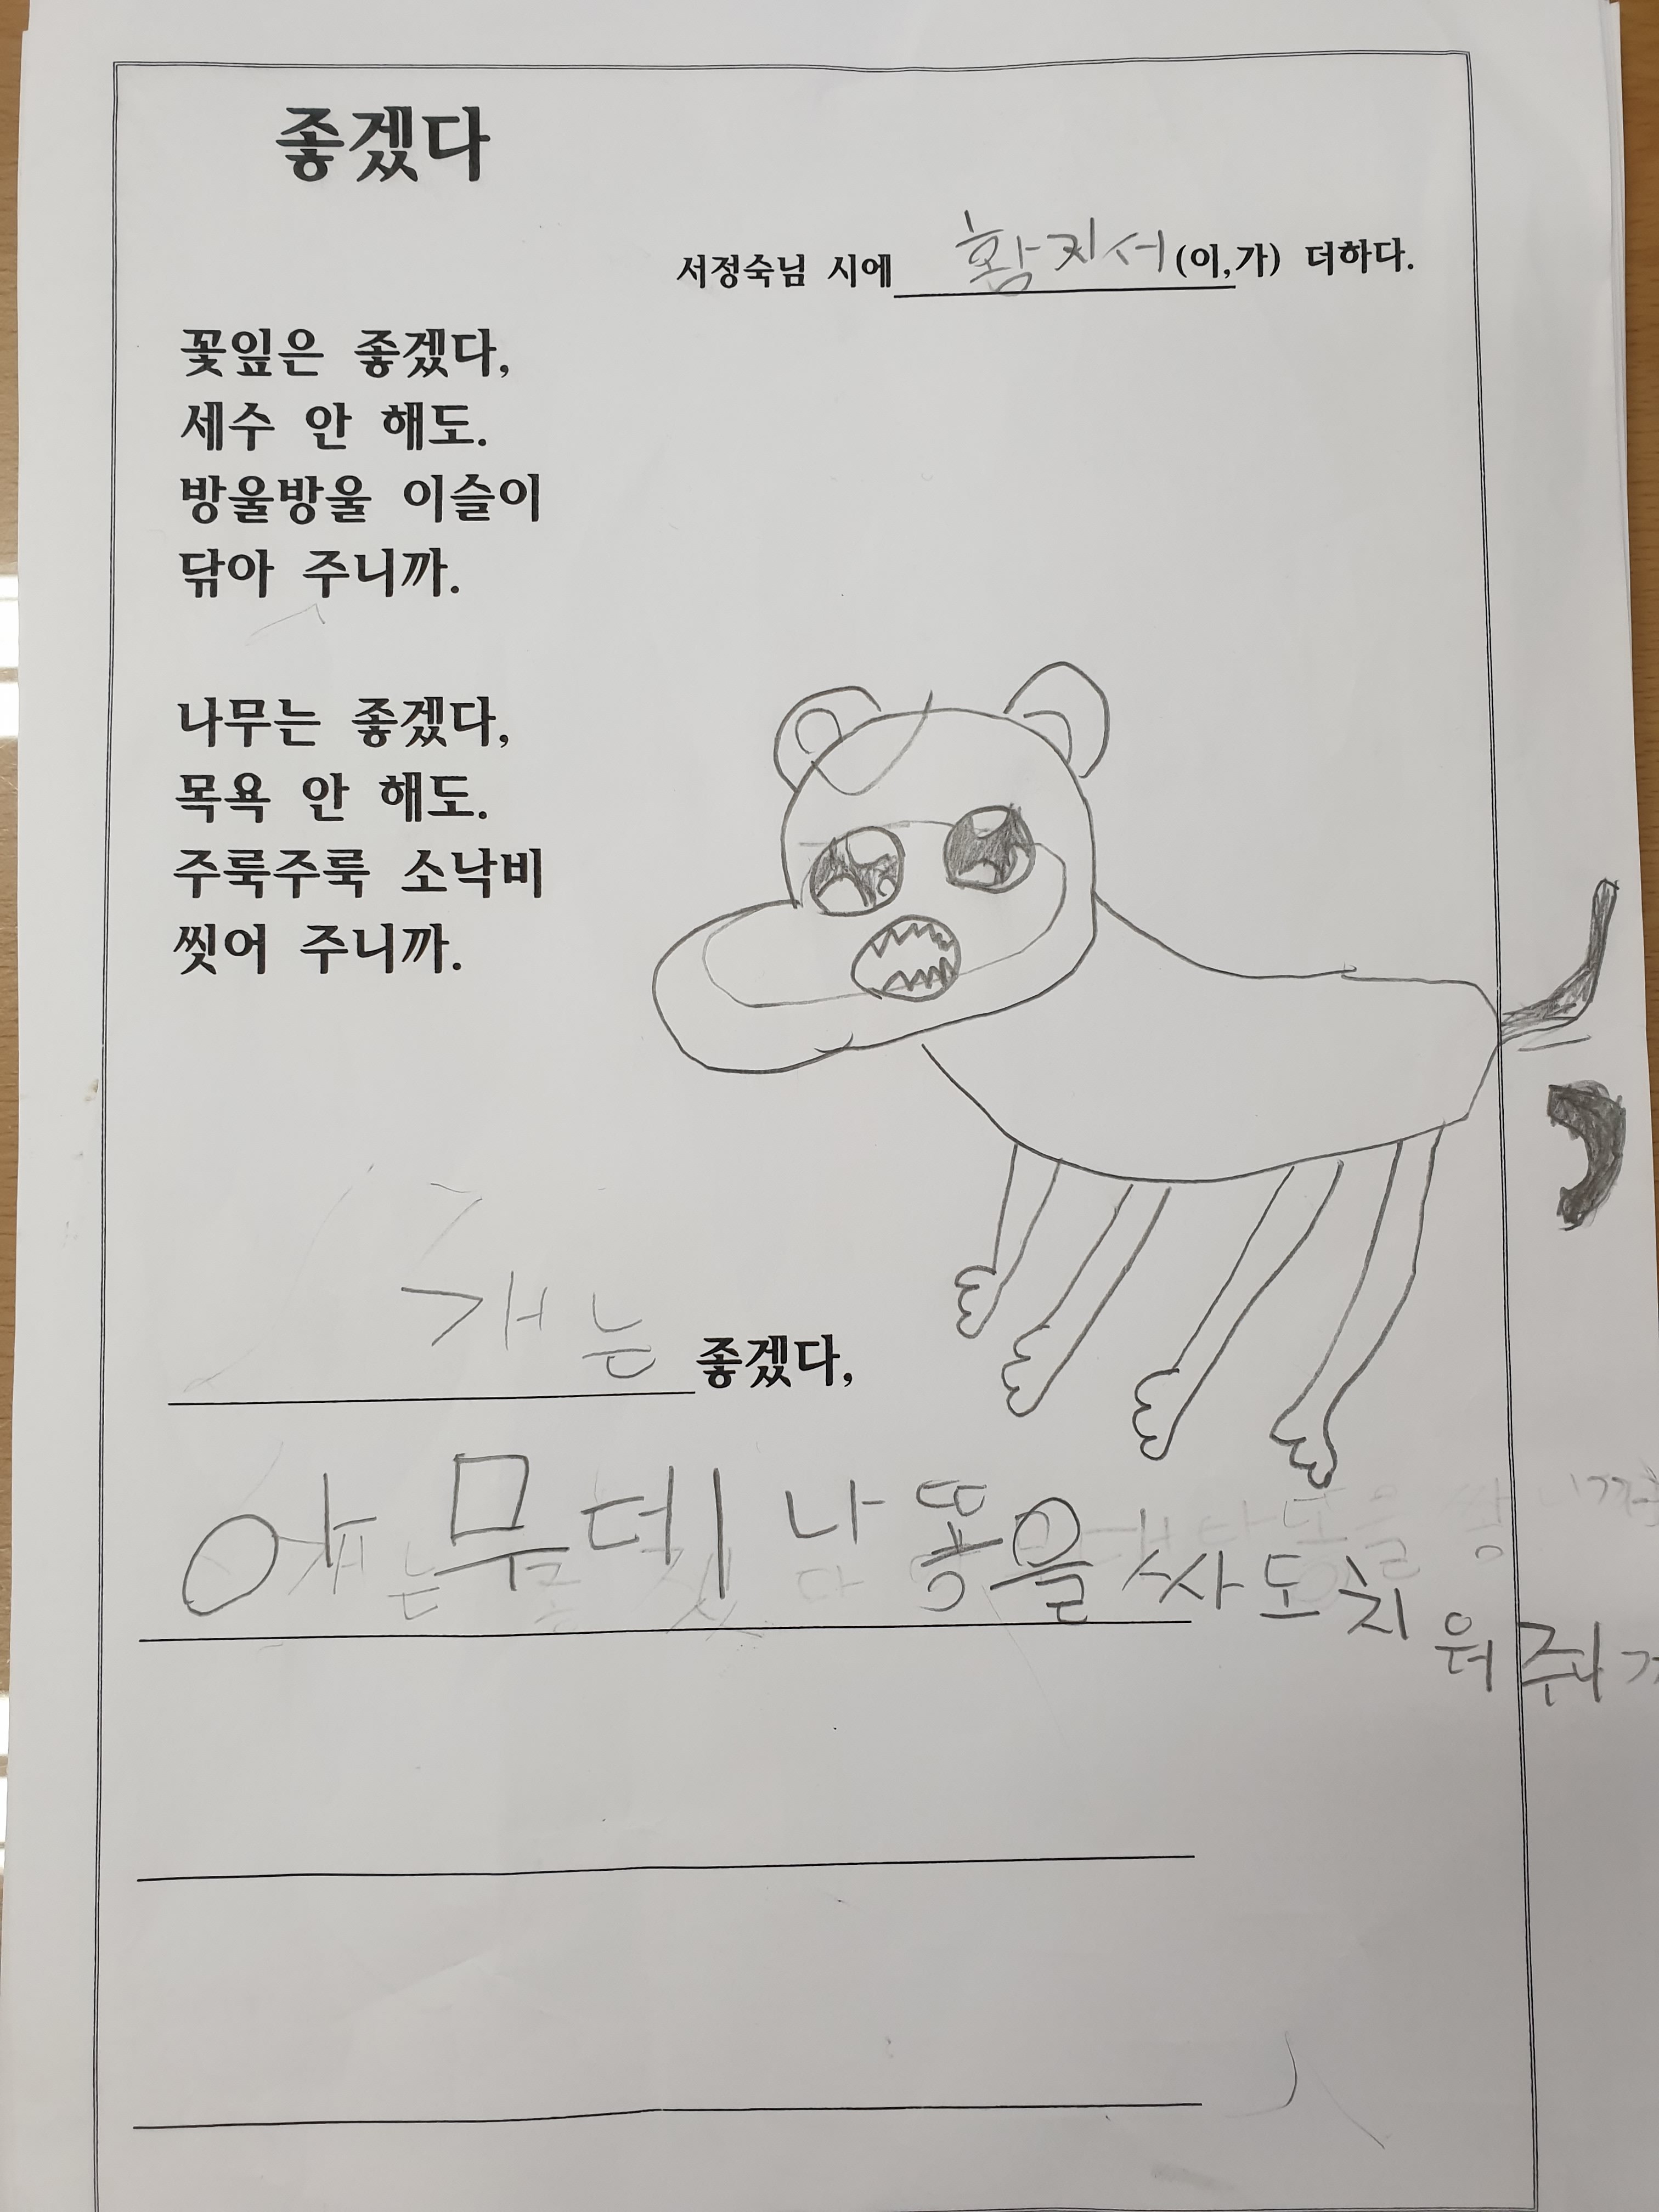 좋겠다
서정숙님 시에 황지서 (이,가) 더하다.
꽃잎은 좋겠다,
세수 안 해도.
방울방울 이슬이
닦아 주니까.
나무는 좋겠다,
목욕 안 해도.
주룩주룩 소낙비
씻어 주니까.
개는 좋겠다,
아무데나 똥을 싸도 치워줘